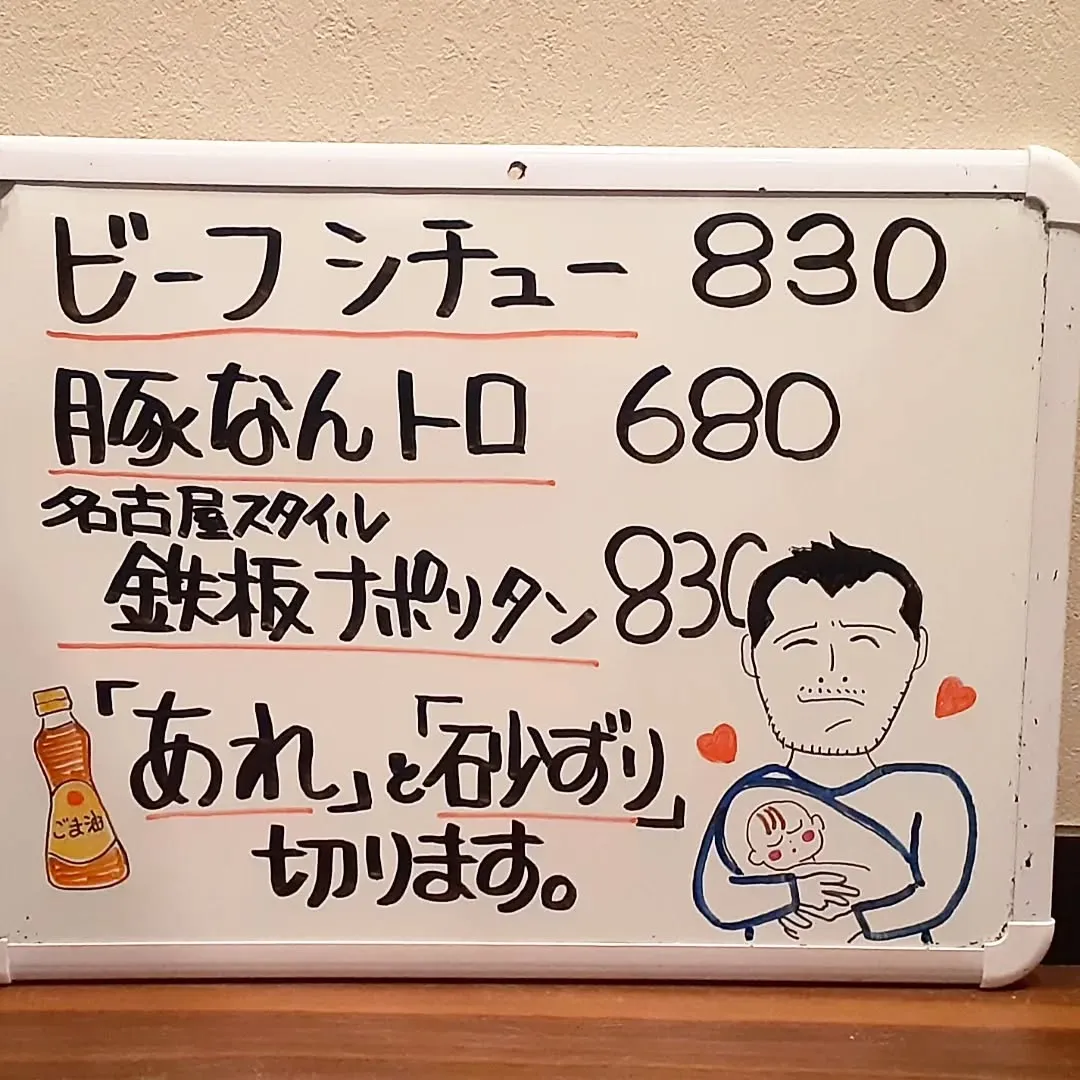 ビーフシチュー 830
豚なんトロ 680
名古屋スタイル
鉄板ナポリタン 830
「あれ」と「砂ずり」
切ります。
ごま油